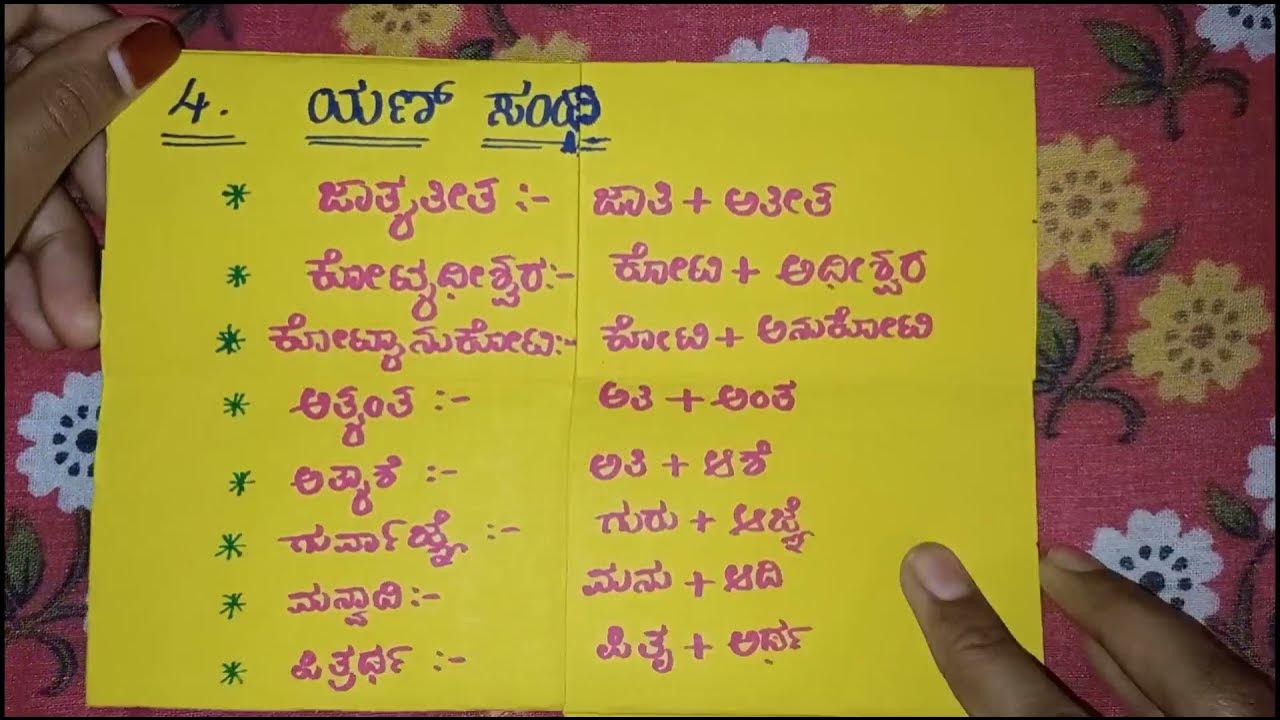 4. ಯಣ್ ಸಂಧಿ
* ಜಾತ್ಯತೀತ :- ಜಾತಿ + ಅತೀತ
* ಕೋಟ್ಯಧೀಶ್ವರ:- ಕೋಟಿ + ಅಧೀಶ್ವರ
* ಕೋಟ್ಯಾನುಕೋಟಿ:- ಕೋಟಿ + ಅನುಕೋಟಿ
* ಅತ್ಯಂತ :- ಅತಿ + ಅಂತ
* ಅತ್ಯಾಶೆ :- ಅತಿ + ಆಶೆ
* ಗುರ್ವಾಜ್ಞೆ :- ಗುರು + ಆಜ್ಞೆ
* ಮನ್ವಾದಿ:- ಮನು + ಆದಿ
* ಪಿತ್ರರ್ಥ :- ಪಿತೃ + ಅರ್ಥ